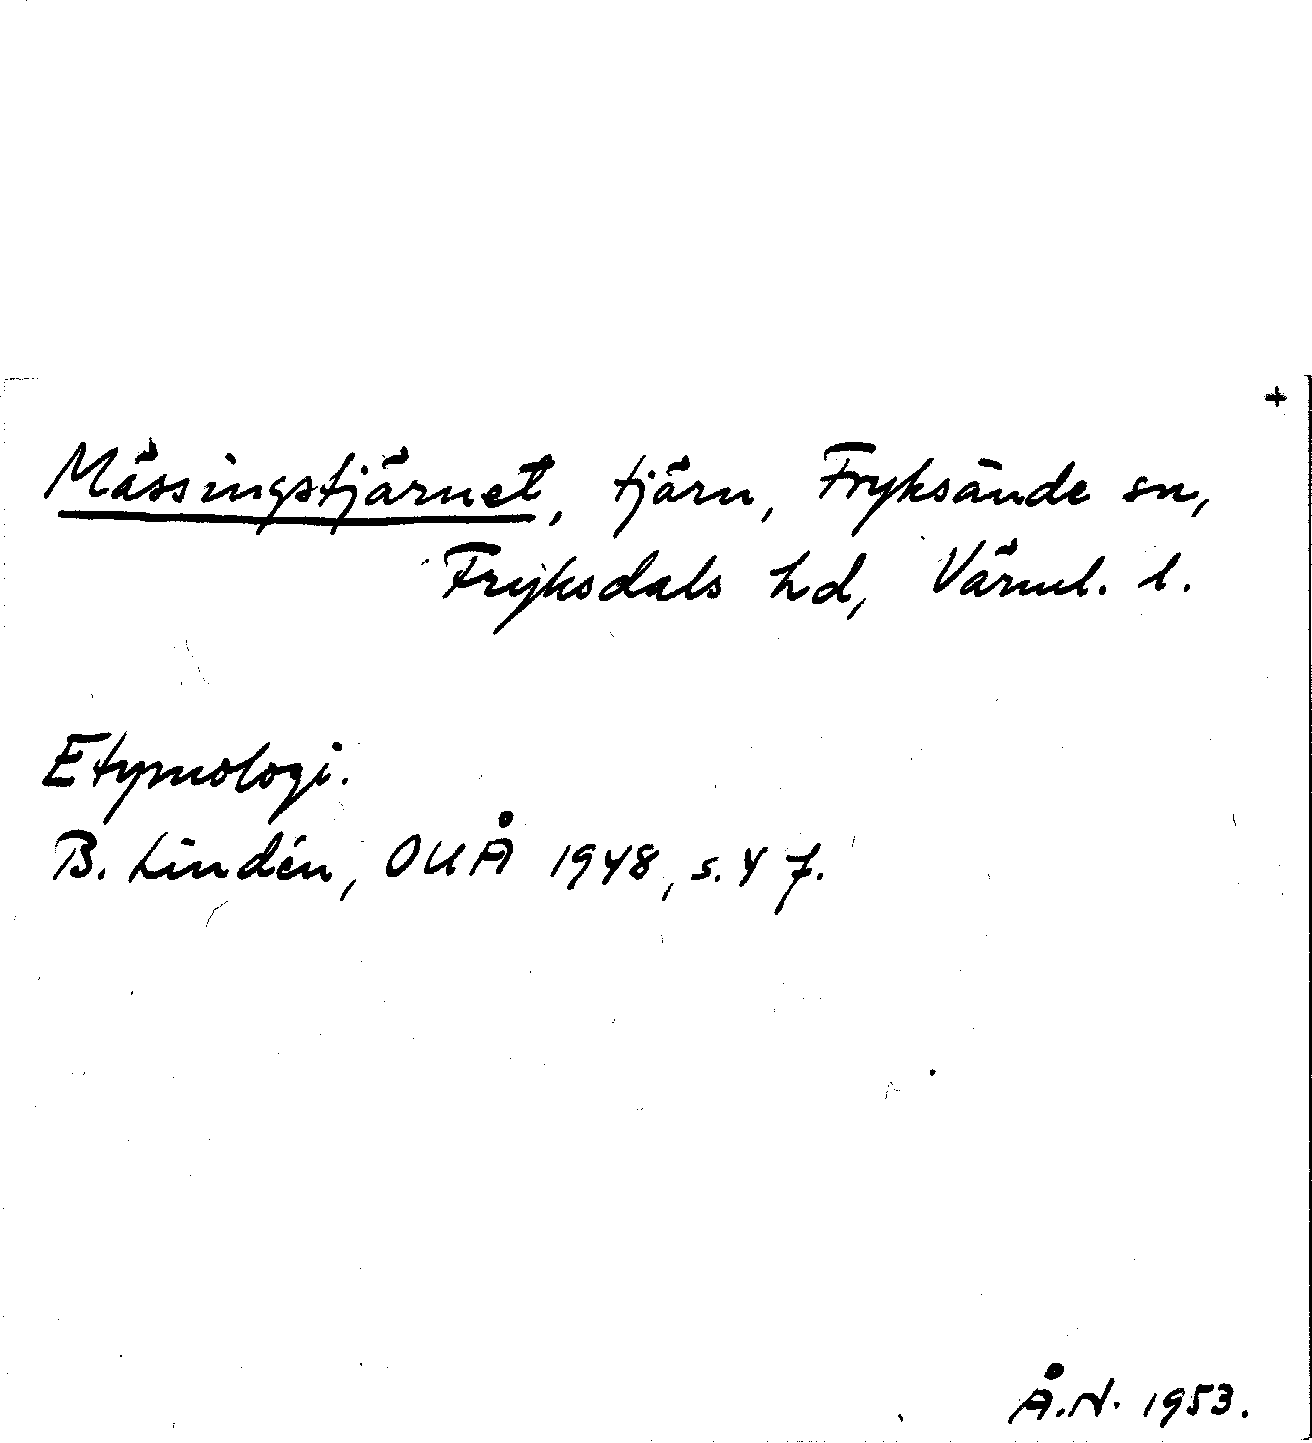 +
Mässingstjärnet, tjärn, Fryksände sn,
Fryksdals hd, Värml. l.
Etymologi.
B. Lindén, OUÅ 1948, s. 4 f.
Å.N. 1953.